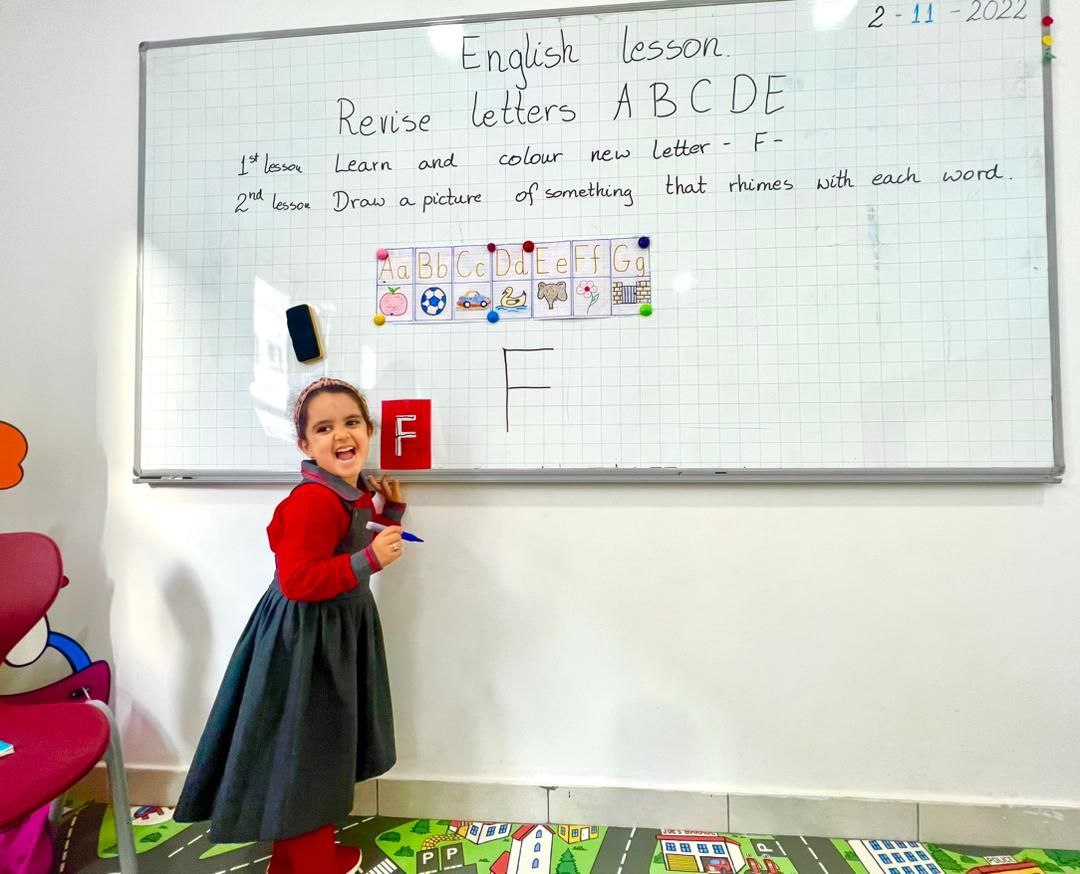 2-11-2022
English lesson.
Revise letters A B C D E
1st lesson Learn and colour new letter - F -
2nd lesson Draw a picture of something that rhimes with each word.
Aa Bb Cc Dd Ee Ff Gg
F
F
P P
JOE'S GARAGE
P
POLICE